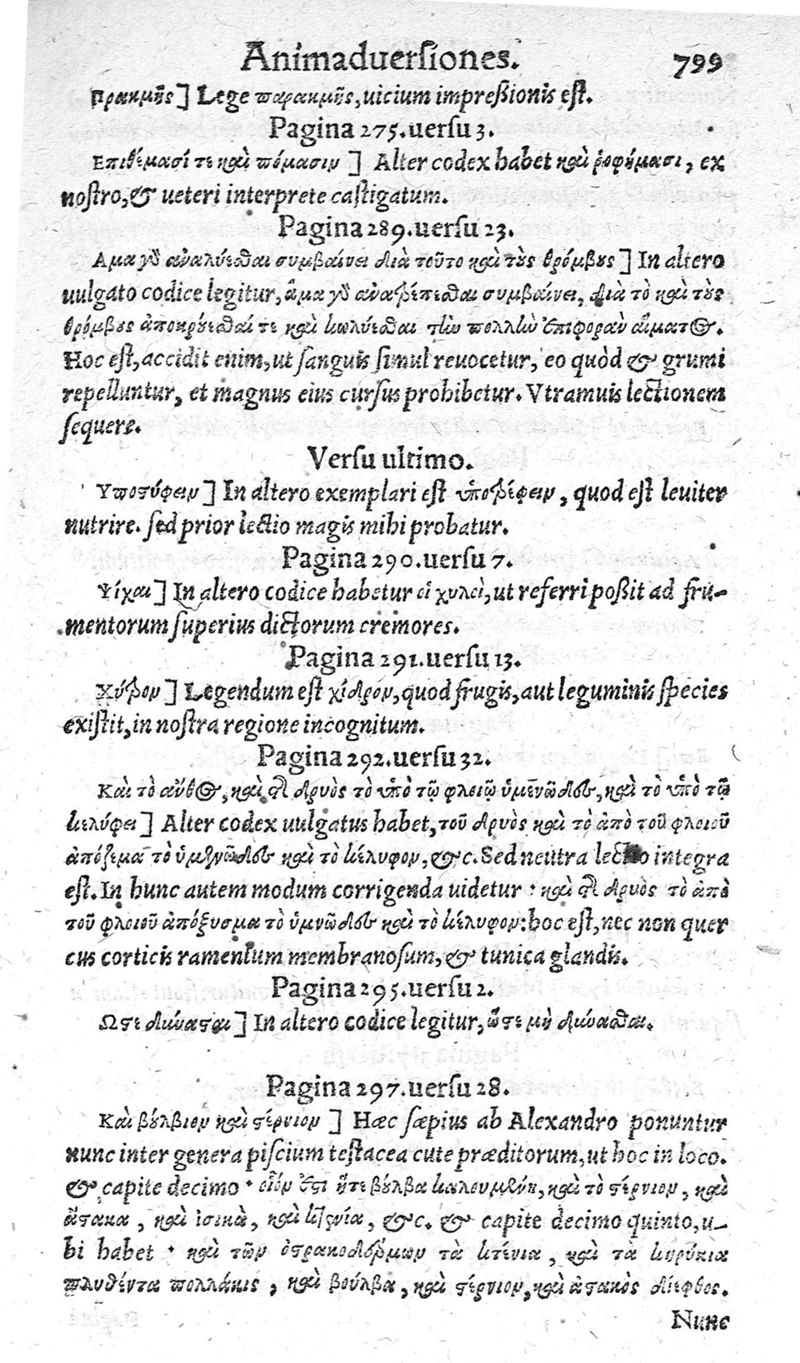 Animaduersiones. 799
πρακμῆς] Lege παρακμῆς, uicium impreßionis est.
Pagina 275. uersu 3.
Επιθέμασί τε καὶ πόμασιν] Alter codex habet καὶ ῥοφήμασι, ex
nostro, & ueteri interprete castigatum.
Pagina 289. uersu 23.
Αμα γὰρ ἀναλύεσθαι συμβαίνει διὰ τοῦτο καὶ τοὺς θρόμβους] In altero
uulgato codice legitur, ἅμα γὰρ ἀνατρέπεσθαι συμβαίνει, διὰ τὸ καὶ τοὺς
θρόμβους ἀποκρούεσθαί τε καὶ κωλύεσθαι τὴν πολλὴν ἐπιφορὰν αἵματος.
Hoc est, accidit enim, ut sanguis simul reuocetur, eo quòd & grumi
repelluntur, et magnus eius cursus prohibetur. Vtramuis lectionem
sequere.
Versu ultimo.
Υποστύφειν] In altero exemplari est ὑποτρέφειν, quod est leuiter
nutrire. sed prior lectio magis mihi probatur.
Pagina 290. uersu 7.
Ψίχαι] In altero codice habetur οἱ χυλοὶ, ut referri poßit ad fru-
mentorum superius dictorum cremores.
Pagina 291. uersu 13.
Χύτρον] Legendum est χίδρον, quod frugis, aut leguminis species
existit, in nostra regione incognitum.
Pagina 292. uersu 32.
Καὶ τὸ ἄνθος, καὶ τῆς δρυὸς τὸ ὑπὸ τῷ φλοιῷ ὑμενῶδες, καὶ τὸ ὑπὸ τῷ
κελύφει] Alter codex uulgatus habet, τοῦ δρυὸς καὶ τὸ ἀπὸ τοῦ φλοιοῦ
ἀπόζεμα τὸ ὑμενῶδες καὶ τὸ κέλυφον, &c. Sed neutra lectio integra
est. In hunc autem modum corrigenda uidetur · καὶ τῆς δρυὸς τὸ ἀπὸ
τοῦ φλοιοῦ ἀπόξυσμα τὸ ὑμενῶδες καὶ τὸ κέλυφον: hoc est, nec non quer
cus corticis ramentum membranosum, & tunica glandis.
Pagina 295. uersu 2.
Ωστε δύνασθαι] In altero codice legitur, ὥστε μὴ δύνασθαι.
Pagina 297. uersu 28.
Καὶ βούλβιον καὶ στέρνιον] Hæc sæpius ab Alexandro ponuntur
nunc inter genera piscium testacea cute præditorum, ut hoc in loco.
& capite decimo · οἷόν ἐστι ἥτε βούλβα καλουμένη, καὶ τὸ στέρνιον, καὶ
ἄστακα, καὶ ἰσικὰ, καὶ κτένια, &c. & capite decimo quinto, u-
bi habet · καὶ τῶν ὀστρακοδέρμων τὰ κτένια, καὶ τὰ κηρύκια
πλυθέντα πολλάκις, καὶ βούλβα, καὶ στέρνιον, καὶ ἀστακὸς δίεφθος.
Nunc